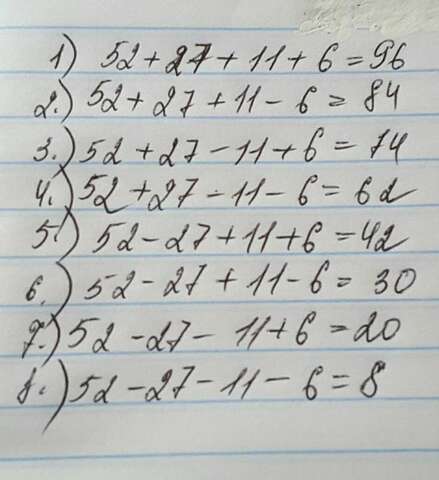 1) 52 + 27 + 11 + 6 = 96
2.) 52 + 27 + 11 - 6 = 84
3.) 52 + 27 - 11 + 6 = 74
4.) 52 + 27 - 11 - 6 = 62
5.) 52 - 27 + 11 + 6 = 42
6.) 52 - 27 + 11 - 6 = 30
7.) 52 - 27 - 11 + 6 = 20
8.) 52 - 27 - 11 - 6 = 8